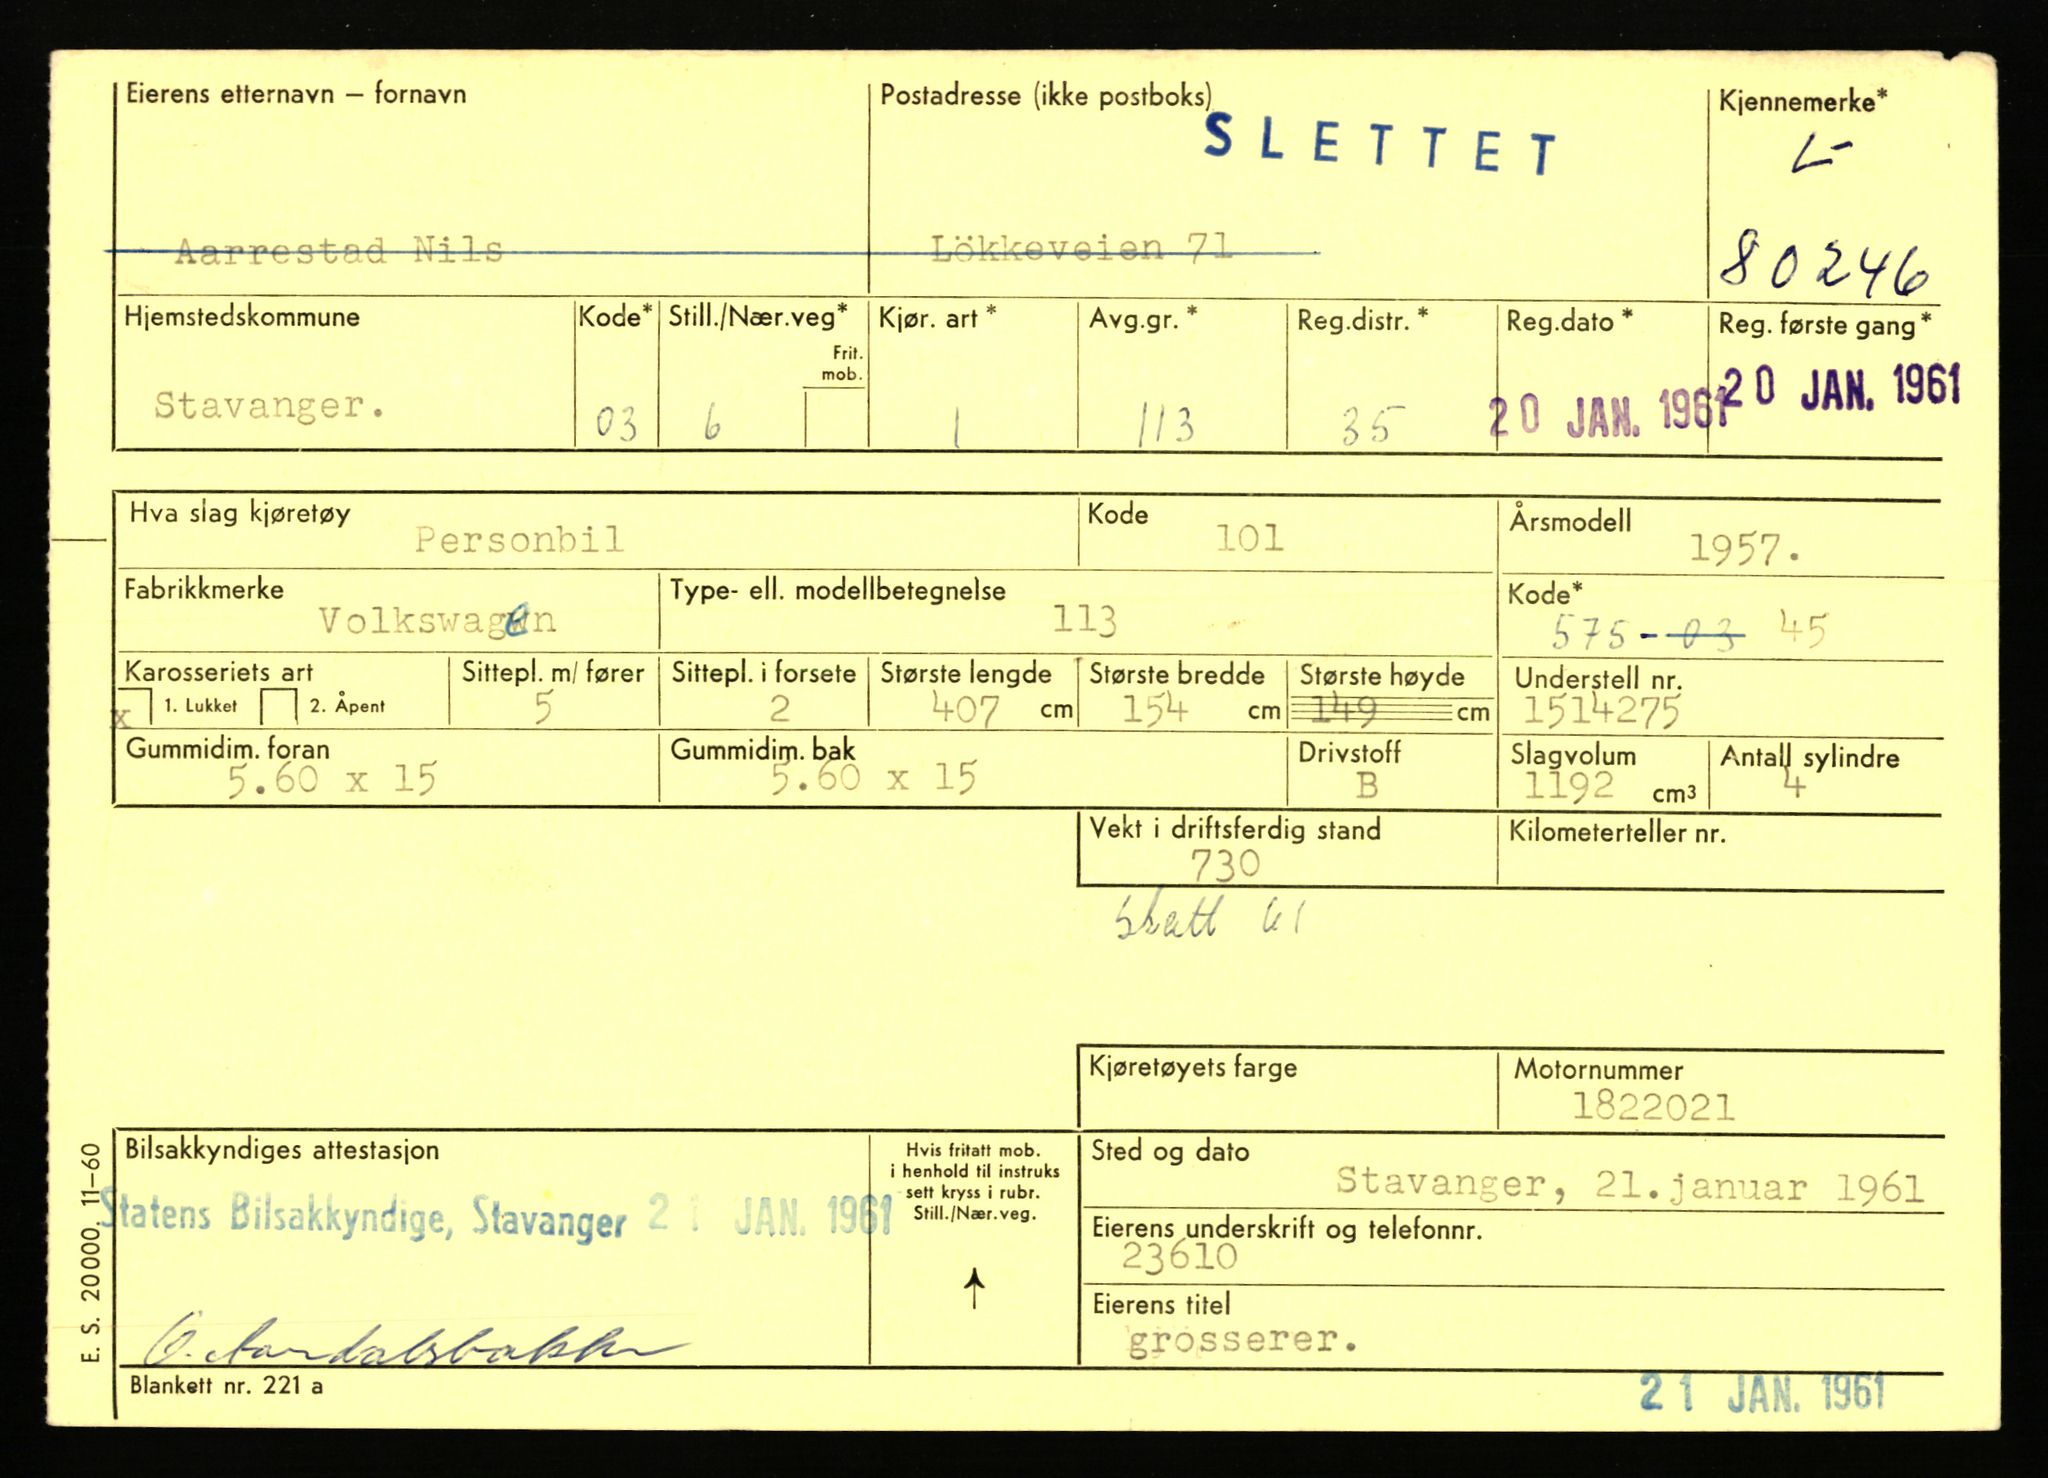 Eierens etternavn – fornavn
Postadresse (ikke postboks)
Kjennemerke*
SLETTET
L-
Aarrestad Nils
Lökkeveien 71
80246
Hjemstedskommune
Kode*
Still./Nær.veg*
Frit. mob.
Kjør. art *
Avg.gr. *
Reg.distr. *
Reg.dato *
Reg. første gang*
Stavanger.
03
6
1
113
35
20 JAN. 1961
20 JAN. 1961
Hva slag kjøretøy
Personbil
Kode
101
Årsmodell
1957.
Fabrikkmerke
Volkswagen
Type- ell. modellbetegnelse
113
Kode*
575 - 03 45
Karosseriets art
x 1. Lukket 2. Åpent
Sittepl. m/ fører
5
Sittepl. i forsete
2
Største lengde
407 cm
Største bredde
154 cm
Største høyde
149 cm
Understell nr.
1514275
Gummidim. foran
5.60 x 15
Gummidim. bak
5.60 x 15
Drivstoff
B
Slagvolum
1192 cm³
Antall sylindre
4
Vekt i driftsferdig stand
730
Kilometerteller nr.
skatt 61
Kjøretøyets farge
Motornummer
1822021
Bilsakkyndiges attestasjon
Statens Bilsakkyndige, Stavanger 21 JAN. 1961
Hvis fritatt mob.
i henhold til instruks
sett kryss i rubr.
Still./Nær.veg.
Sted og dato
Stavanger, 21.januar 1961
Eierens underskrift og telefonnr.
23610
Eierens titel
grosserer.
Blankett nr. 221 a
21 JAN. 1961
E. S. 20000. 11–60